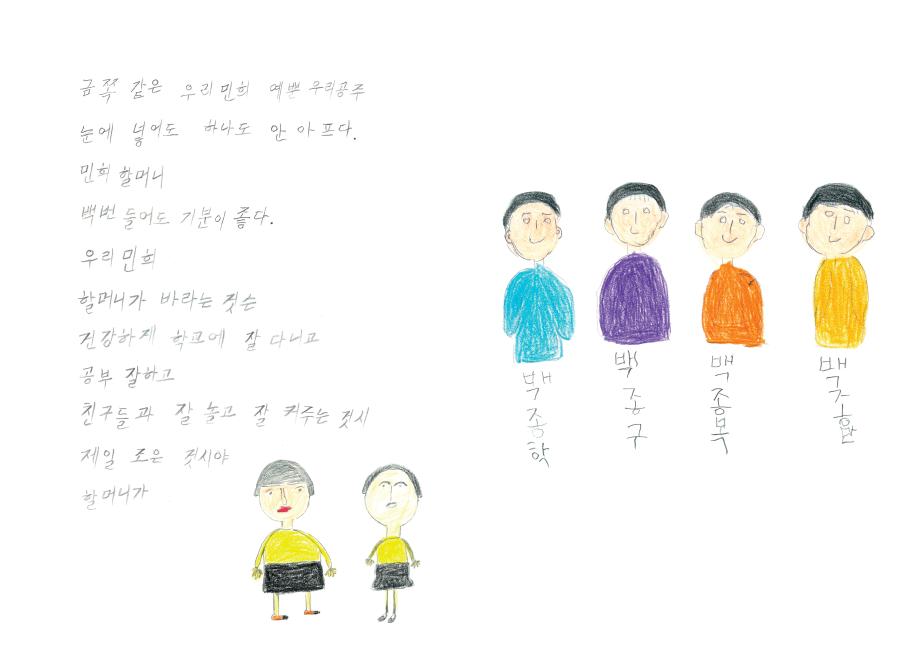 금쪽 같은 우리 민희 예쁜 우리공주
눈에 넣어도 하나도 안 아프다.
민희 할머니
백번 들어도 기분이 좋다.
우리 민희
할머니가 바라는 것슨
건강하게 학교에 잘 다니고
공부 잘하고
친구들과 잘 놀고 잘 커주는 것시
제일 조은 것시야
할머니가
백종학
백종구
백종목